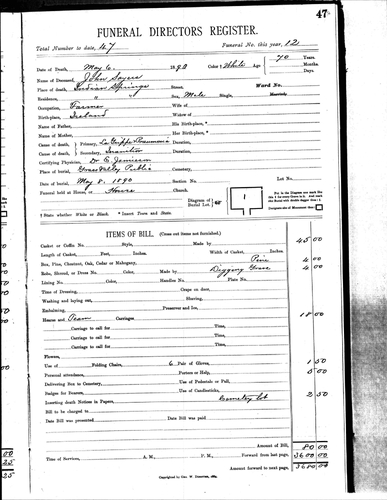 47
FUNERAL DIRECTORS REGISTER.
Total Number to date, 47 Funeral No. this year, 12
Date of Death, May 6. 1890 Color † White Age 70 Years.
Months.
Days.
Name of Deceased, John Sayers
Place of death, Indian Springs Street. Ward No.
Residence, " " Sex, Male Single, Married
Occupation, Farmer Wife of
Birth-place, Ireland Widow of
Name of Father, His Birth-place, *
Name of Mother, Her Birth-place, *
Cause of death Primary, La Grippe Pneumonia Duration,
Cause of death Secondary, Inanition Duration,
Certifying Physician, Dr C. Jamieson
Place of burial, Grass Valley Public Lot No.
Date of burial, May 8. 1890 Section No.
Funeral held at House Church. Diagram of Burial Lot 1
† State whether White or Black. * Insert Town and State.
ITEMS OF BILL. (Cross out items not furnished.)
Casket or Coffin No. Style, Made by 45 00
Length of Casket, Feet, Inches. Width of Casket, Inches
Box, Pine, Chestnut, Oak, Cedar or Mahogany, Pine 4 00
Robe, Shroud, or Dress No. Color, Made by Digging Grave 4 00
Lining No. Color, Handles No. Plate No.
Time of Dressing, Crape on door,
Washing and laying out, Shaving,
Embalming, Preserver and Ice,
Hearse and Team Carriages 18 00
Carriage to call for Time,
Carriage to call for Time,
Carriage to call for Time,
Carriage to call for Time,
Flowers,
Use of Folding Chairs, 6 Pair of Gloves, 1 50
Personal attendance, Posters or Help, 5 00
Delivering Box to Cemetery, Use of Pedestals or Pall,
Badges for Bearers, Use of Candlesticks,
Inserting death Notices in Papers, Cemetery lot 2 50
Bill to be charged to
Date Bill was presented Date Bill was paid
Amount of Bill, 80 00
Time of Services, A. M., P. M., Forward from last page, 3600 00
Amount forward to next page, 3680 00